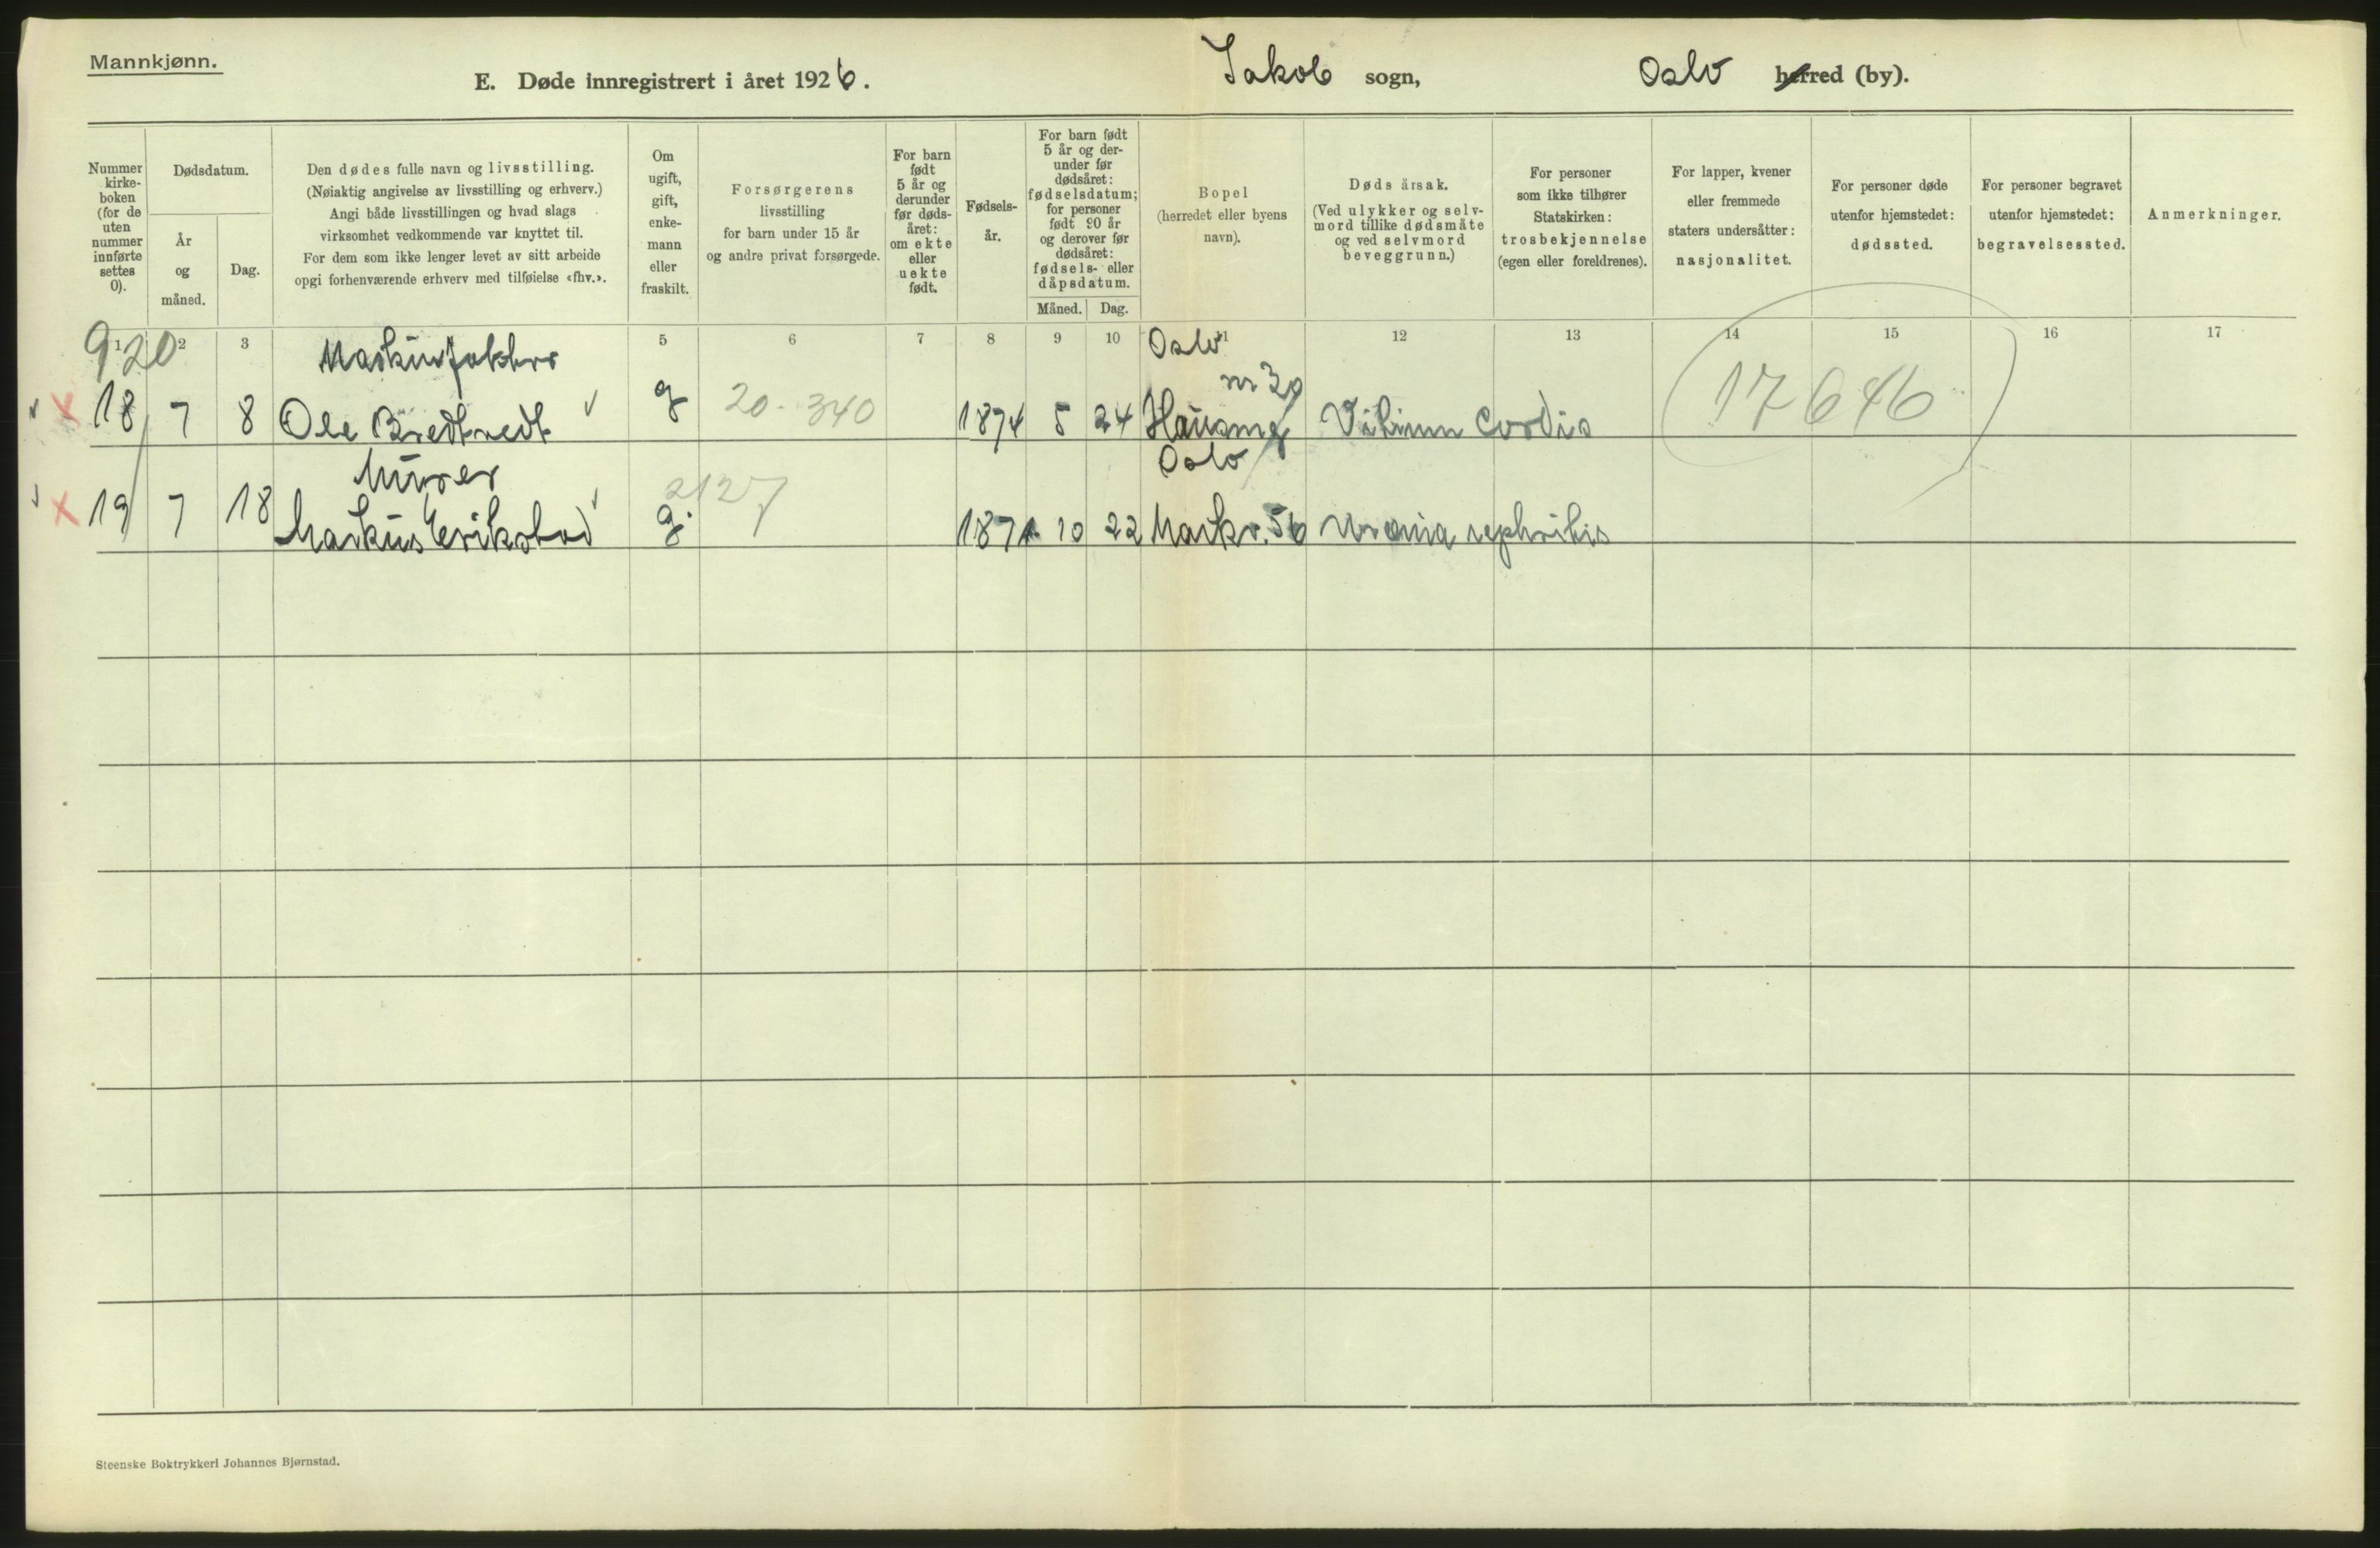 Mannkjønn.
E. Døde innregistrert i året 1926.
Jakob sogn,
Oslo herred (by).
Nummer kirke-boken (for de uten nummer innførte settes 0).
Dødsdatum.
År og måned.
Dag.
Den dødes fulle navn og livsstilling.
(Nøiaktig angivelse av livsstilling og erhverv.)
Angi både livsstillingen og hvad slags
virksomhet vedkommende var knyttet til.
For dem som ikke lenger levet av sitt arbeide
opgi forhenværende erhverv med tilføielse «fhv.».
Om ugift, gift, enke-mann eller fraskilt.
Forsørgerens
livsstilling
for barn under 15 år
og andre privat forsørgede.
For barn født 5 år og derunder før døds-året: om ekte eller uekte født.
Fødsels-år.
For barn født 5 år og der-under før dødsåret: fødselsdatum; for personer født 90 år og derover før dødsåret: fødsels- eller dåpsdatum.
Måned.
Dag.
Bopel
(herredet eller byens
navn).
Dødsårsak.
(Ved ulykker og selv-
mord tillike dødsmåte
og ved selvmord
beveggrunn.)
For personer
som ikke tilhører
Statskirken:
trosbekjennelse
(egen eller foreldrenes).
For lapper, kvener
eller fremmede
staters undersåtter:
nasjonalitet.
For personer døde
utenfor hjemstedet:
dødssted.
For personer begravet
utenfor hjemstedet:
begravelsessted.
Anmerkninger.
1 2 3 5 6 7 8 9 10 11 12 13 14 15 16 17
920
Oslo
nr 39
18 7 8 Ole Bredtvedt g 20-340 1874 5 24 Hausmg Vitium Cordis 17646
Murer Oslo
2127
19 7 18 Markus Erikstad g. 1871 10 22 Markv. 56 Uremia nephritis
Steenske Boktrykkeri Johannes Bjørnstad.